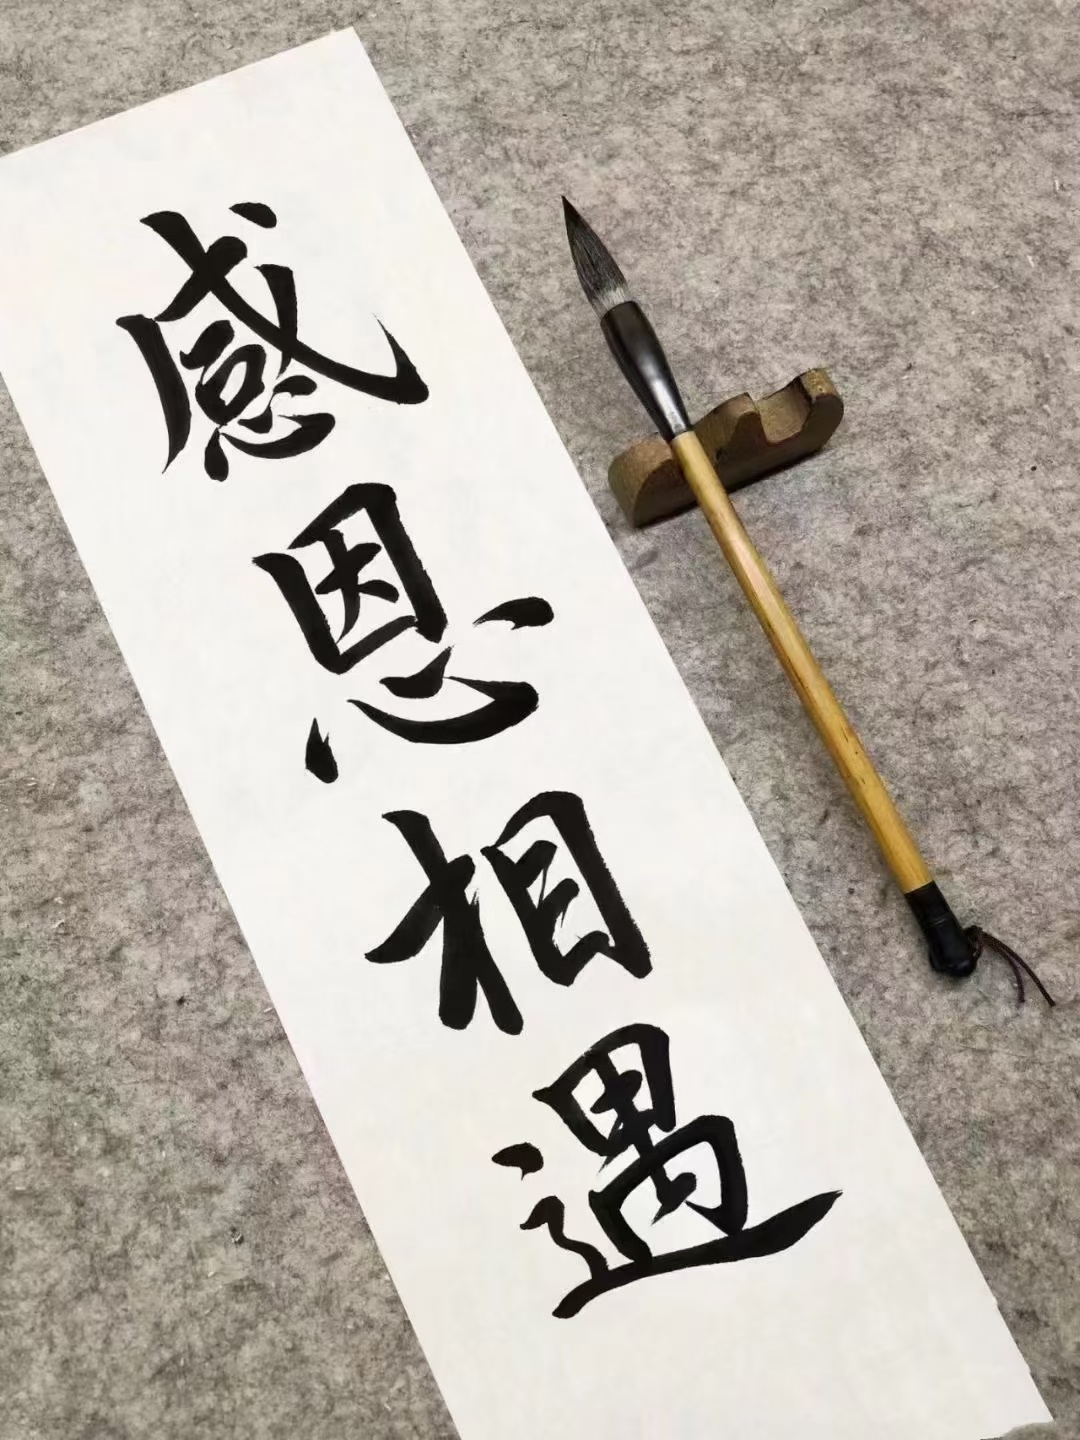 感恩相遇